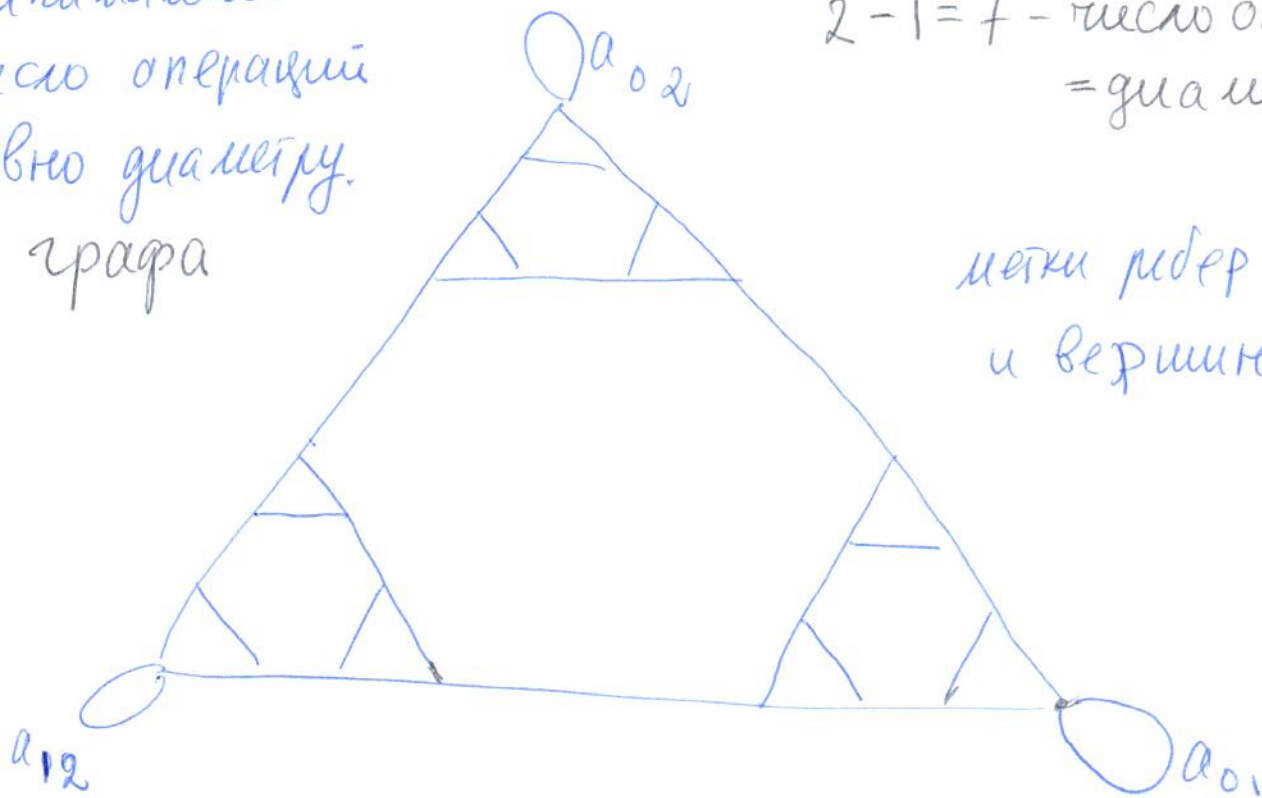 сло операций
вно диаметру.
графа
a 0 2
2 - 1 = 7 - число о
= диам
метки ребер
и вершин
a 12
a 01